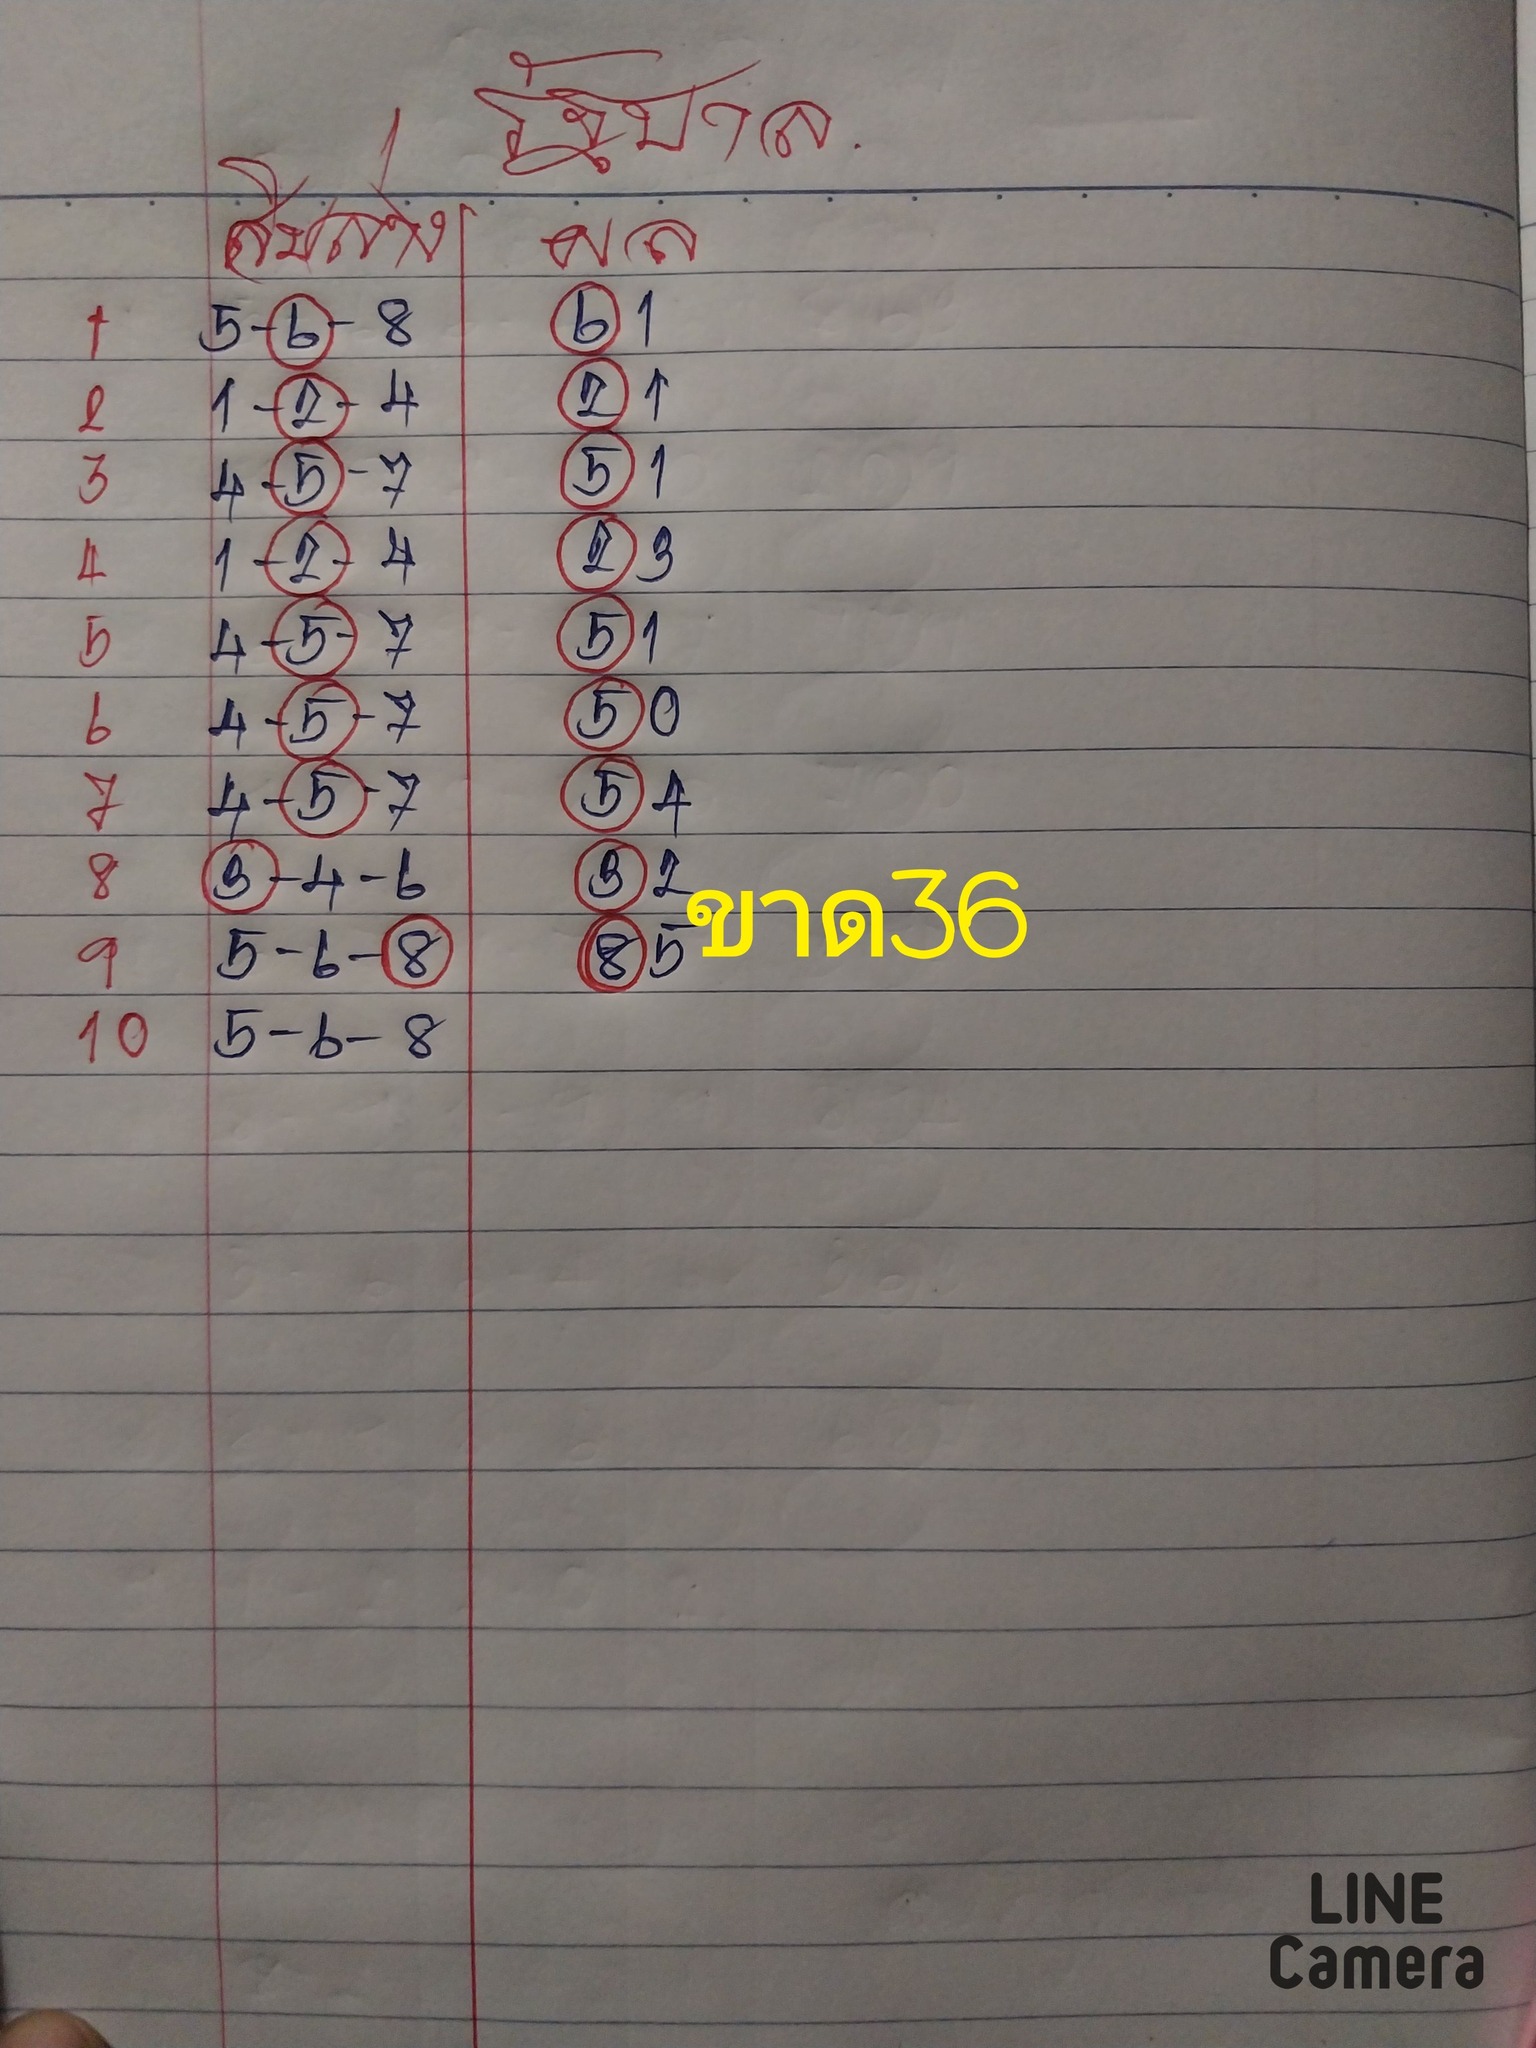 รัฐบาล.
สิบล่าง ผล
1 5-6-8 61
2 1-2-4 21
3 4-5-7 51
4 1-2-4 23
5 4-5-7 51
6 4-5-7 50
7 4-5-7 54
8 3-4-6 32
ขาด36
9 5-6-8 85
10 5-6-8
LINE
Camera